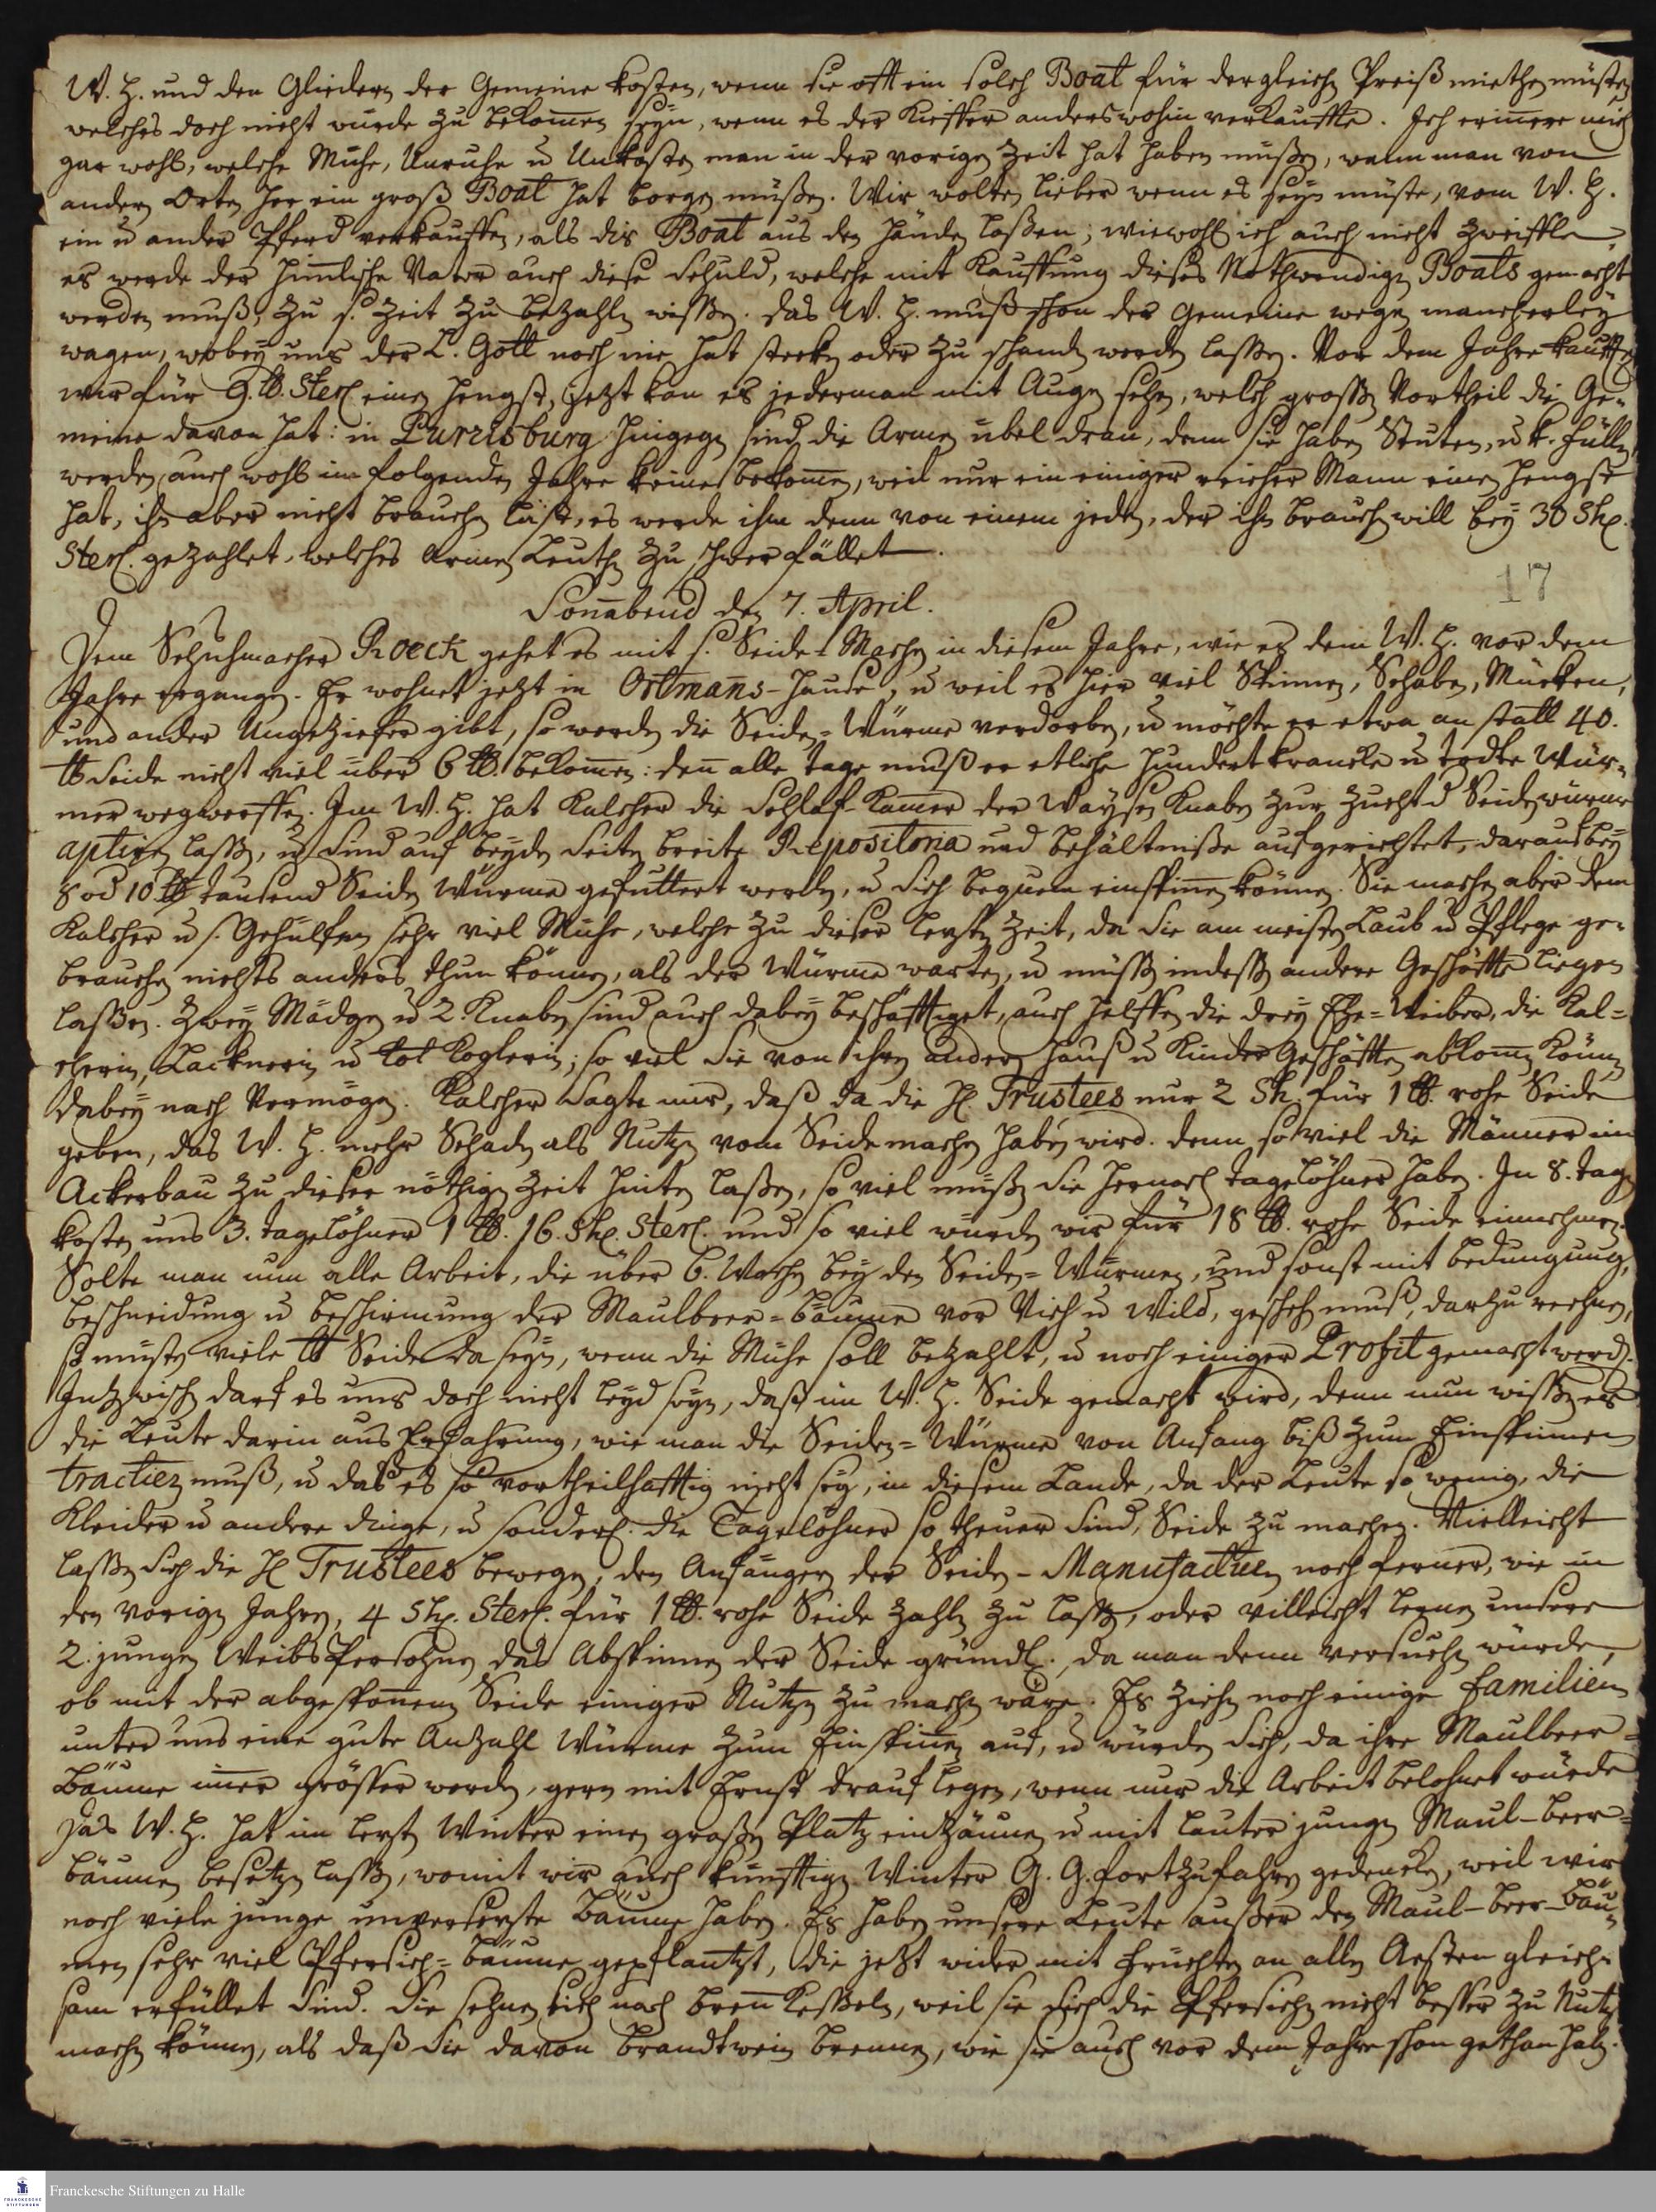 W. H. und den Gliedern der Gemeine kosten, wenn sie oft ein solch Boat für dergleichen Preiß miethen müsten,
welches doch nicht würde zu bekom̄en seyn, wenn es der Kieffer anderswohin verkauffte. Ich erin̄ere mich
gar wohl, welche Mühe, Unruhe u Unkosten man in der vorigen Zeit hat haben müßen, wenn man von
andern Orten her ein groß Boat hat borgen müßen. Wir wolten lieber wenn es seyn müste, vom W. H.
ein u ander Pferd verkauffen, als dis Boat aus den Händen laßen; wiewohl ich auch nicht zweiffle,
es werde der Him̄lische Vater auch diese Schuld, welche mit Kauffung dieses Nothwendigen Boats gemacht
werden muß, zu s. Zeit zu bezahlen wißen. Das W. H. muß schon der Gemeine wegen mancherley
wagen, wobey uns der L. Gott noch nie hat stecken oder zu schanden werden laßen. Vor dem Jahre kaufften
wir für 9. lb. Sterl. einen Hengst, jetzt kan es jederman mit Augen sehen, welch großen Vortheil die Ge-
meine davon hat: in Purrisburg hingegen sind die Armen übel dran, denn sie haben Stuten, u k. Füllen
werden auch wohl im folgenden Jahre keines bekom̄en, weil nur ein einiger reicher Mann einen Hengst
hat, ihn aber nicht brauchen läßt, es werde ihm denn von einem jeden, der ihn brauchen will bey 30 Shl.
Sterl. gezahlet, welches Armen Leuthen zu schwer fället.
17
Son̄abend den 7. April.
Dem Schuhmacher Roeck gehet es mit s. Seide-Machen in diesem Jahre, wie es dem W. H. vor dem
Jahre ergangen. Er wohnet jetzt in Ortman̄s-Hause, u weil es hier viel Spinnen, Schaben, Mücken,
und ander Ungeziefer gibt, so werden die Seiden-Würme verdorben, u möchte er etwa anstatt 40.
lb Seide nicht viel über 6 lb. bekom̄en: den̄ alle tage muß er etliche hundert krancke u todte Wür-
mer wegwerffen. Im W. H. hat Kalcher die Schlaf-Kam̄er der Waysen Knaben zur Zucht d Seidenwürme
aptiren laßen, u sind auf beyden Seiten breite Repositoria und Behältniße aufgerichtet, darauf bey
8 od 10 tausend Seiden Würme gefuttert werden, u sich bequem einspin̄en können. Sie machen aber dem
Kalcher u s. Gehülfen sehr viel Mühe, welche zu dieser letzten Zeit, da sie am meisten Laub u Pflege ge-
brauchen nichts anders thun können, als der Würme warten, u müßen indeßen andere Geschäffte liegen
laßen. Zwey Mädgen u 2. Knaben sind auch dabey beschäfftiget, auch helffen die drey Ehe-Weiber, die Kal-
cherin, Lacknerin u Koglerin, so viel sie von ihren andern Hauß u Kinder Geschäfften abkom̄en können
dabey nach Vermögen. Kalcher sagte mir, daß da die H. Trustees nur 2 Sh. für 1 lb. rohe Seide
geben, das W. H. mehr Schaden als Nutzen vom Seidemachen haben wird. denn so viel die Männer im
Ackerbau zu dieser nöthigen Zeit hinten laßen, so viel müßen sie hernach tagelöhner haben. In 8. tagen
kosten uns 3. tagelöhner 1 lb. 16. Shl. Sterl. und so viel würden wir für 18 lb. rohe Seide einnehmen.
Solte man nun alle Arbeit, die über 6. Wochen bey den Seiden-Würmen, und sonst mit bedüngung,
beschneidung u beschirmung der Maulbeer-bäume vor Vieh u Wild, geschehen muß, darzu rechnen,
so müsten viele lb Seide da seyn, wenn die Mühe soll bezahlt, u noch einiger Profit gemacht werden.
Inzwischen darf es uns doch nicht leyd seyn, daß im W. H. Seide gemacht wird, denn nun wißen es
die Leute darin aus Erfahrung, wie man die Seiden-Würme von Anfang biß zum Einspinnen
tractiren muß, u daß es so vortheilhafftig nicht sey, in diesem Lande, da der Leute so wenig, die
Kleider u andere dinge, u sonderl. die Tagelöhner so theuer sind, Seide zu machen. Vielleicht
laßen sich die H Trustees bewegen, den Anfängern der Seiden-Manufacturen noch ferner, wie in
den vorigen Jahren, 4 Shl. Sterl. für 1 lb. rohe Seide zahlen zu laßen, oder villeicht lernen unsere
2. jungen Weibs Persohnen das Abspinnen der Seide gründl., da man denn versuchen würde,
ob mit der abgespon̄enen Seide einiger Nutzen zu machen wäre. Es ziehen noch einige familien
unter uns eine gute Anzahl Würme zum Einspin̄en auf, u würden sich, da ihre Maulbeer-
Bäume im̄er größer werden, gern mit Ernst drauf legen, wenn nur die Arbeit belohnet würde
Das W. H. hat im letzten Winter einen großen Platz einzäunen u mit lauter jungen Maul-beer-
bäumen besetzen laßen, womit wir auch künfftigen Winter G. G. fortzufahren gedencken, weil wir
noch viele junge unversetzte Bäume haben. Es haben unsere Leute außer den Maul-beer-Bäu-
men sehr viel Pfersich-bäume gepflantzt, die jetzt wider mit Früchten an allen Aesten gleich-
sam erfüllet sind. Sie sehnen sich nach bren̄ Keßeln, weil sie sich die Pfersichen nicht besser zu Nutz
machen können, als daß sie davon Brandtwein brennen, wie sie auch vor dem Jahre schon gethan haben.
Franckesche Stiftungen zu Halle
FRANCKESCHE
STIFTUNGEN